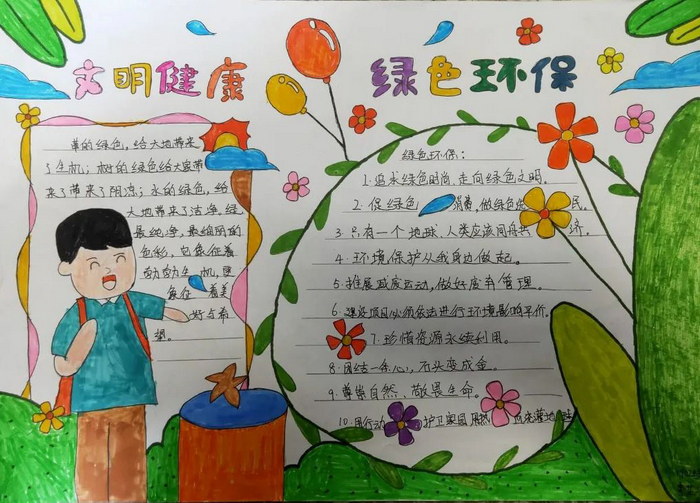 文明健康 绿色环保
草的绿色，给大地带来
了生机；树的绿色给大家带
来了带来了阴凉；水的绿色，给
大地带来了洁净。绿
最纯净，最细丽的
色彩，它象征着
勃勃生机，更
象征着美
好与希
望。
绿色环保：
1.追求绿色时尚，走向绿色文明。
2.促绿色消费，做绿色 民。
3.只有一个地球，人类应该同舟共济。
4.环境保护从我身边做起。
5.推展 运动，做好废弃管理。
6.建设项目必须依法进行环境影响评价。
7.珍惜资源永续利用。
8.团结一条心，石头变成金。
9.尊崇自然，敬畏生命。
10.用行动护卫家园，用